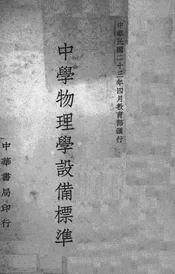 中華民國二十三年四月教育部頒行
中學物理學設備標準
中華書局印行